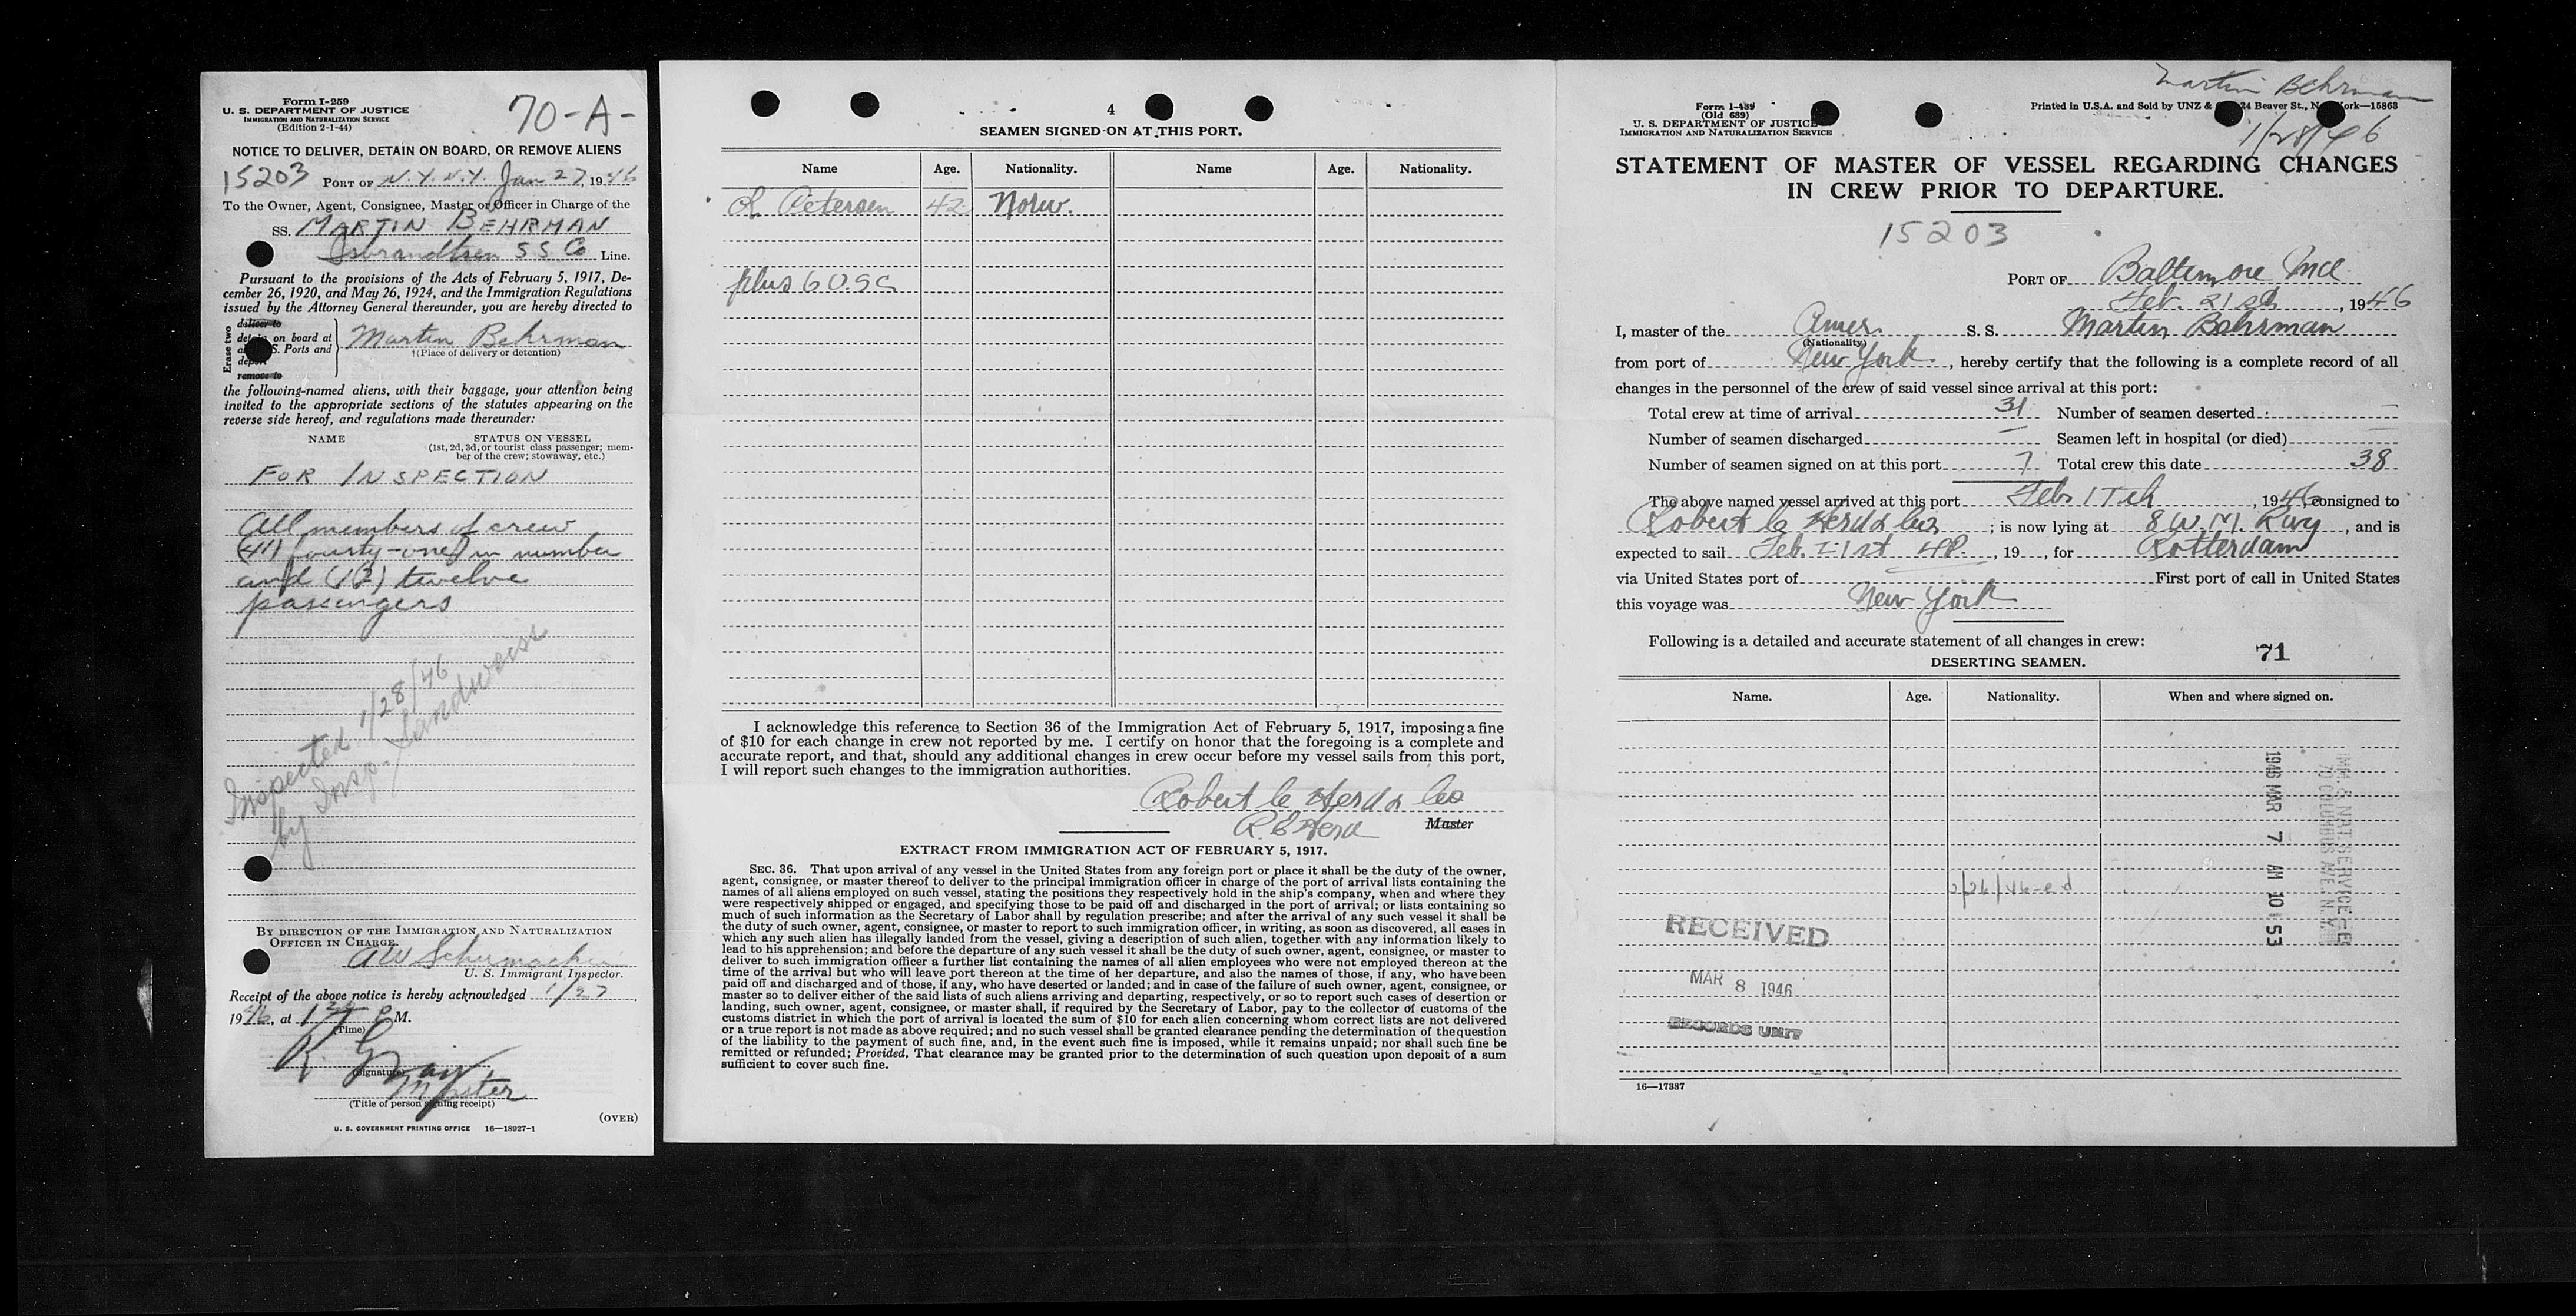 Form I-259
U. S. DEPARTMENT OF JUSTICE
IMMIGRATION AND NATURALIZATION SERVICE
(Edition 2-1-44)
70-A-
NOTICE TO DELIVER, DETAIN ON BOARD, OR REMOVE ALIENS
15203 PORT OF N.Y. N.Y. Jan 27, 1946
To the Owner, Agent, Consignee, Master or Officer in Charge of the
SS. MARTIN BEHRMAN
Isbrandtsen S S Co Line.
Pursuant to the provisions of the Acts of February 5, 1917, De-
cember 26, 1920, and May 26, 1924, and the Immigration Regulations
issued by the Attorney General thereunder, you are hereby directed to
Erase two
deliver to
on board at
S. Ports and
remove to
Martin Behrman
†(Place of delivery or detention)
the following-named aliens, with their baggage, your attention being
invited to the appropriate sections of the statutes appearing on the
reverse side hereof, and regulations made thereunder:
NAME STATUS ON VESSEL
(1st, 2d, 3d, or tourist class passenger; mem-
ber of the crew; stowaway, etc.)
FOR INSPECTION
All members of crew
(41) fourty-one in number
and (12) twelve
passengers
Inspected 1/28/46
by Insp.
BY DIRECTION OF THE IMMIGRATION AND NATURALIZATION
OFFICER IN CHARGE.
AW Schumacher
U. S. Immigrant Inspector.
Receipt of the above notice is hereby acknowledged 1/27
1946, at P M.
(Time)
K Gray
(Signature)
Master
(Title of person signing receipt)
(OVER)
U. S. GOVERNMENT PRINTING OFFICE 16—18927-1
4
SEAMEN SIGNED ON AT THIS PORT.
Name Age. Nationality. Name Age. Nationality.
Petersen 42 Norw.
plus 6 USC
I acknowledge this reference to Section 36 of the Immigration Act of February 5, 1917, imposing a fine
of $10 for each change in crew not reported by me. I certify on honor that the foregoing is a complete and
accurate report, and that, should any additional changes in crew occur before my vessel sails from this port,
I will report such changes to the immigration authorities.
Robert C Herd & Co
R C Herd Master
EXTRACT FROM IMMIGRATION ACT OF FEBRUARY 5, 1917.
SEC. 36. That upon arrival of any vessel in the United States from any foreign port or place it shall be the duty of the owner,
agent, consignee, or master thereof to deliver to the principal immigration officer in charge of the port of arrival lists containing the
names of all aliens employed on such vessel, stating the positions they respectively hold in the ship's company, when and where they
were respectively shipped or engaged, and specifying those to be paid off and discharged in the port of arrival; or lists containing so
much of such information as the Secretary of Labor shall by regulation prescribe; and after the arrival of any such vessel it shall be
the duty of such owner, agent, consignee, or master to report to such immigration officer, in writing, as soon as discovered, all cases in
which any such alien has illegally landed from the vessel, giving a description of such alien, together with any information likely to
lead to his apprehension; and before the departure of any such vessel it shall be the duty of such owner, agent, consignee, or master to
deliver to such immigration officer a further list containing the names of all alien employees who were not employed thereon at the
time of the arrival but who will leave port thereon at the time of her departure, and also the names of those, if any, who have been
paid off and discharged and of those, if any, who have deserted or landed; and in case of the failure of such owner, agent, consignee, or
master so to deliver either of the said lists of such aliens arriving and departing, respectively, or so to report such cases of desertion or
landing, such owner, agent, consignee, or master shall, if required by the Secretary of Labor, pay to the collector of customs of the
customs district in which the port of arrival is located the sum of $10 for each alien concerning whom correct lists are not delivered
or a true report is not made as above required; and no such vessel shall be granted clearance pending the determination of the question
of the liability to the payment of such fine, and, in the event such fine is imposed, while it remains unpaid; nor shall such fine be
remitted or refunded; Provided, That clearance may be granted prior to the determination of such question upon deposit of a sum
sufficient to cover such fine.
Martin Behrman
1/28/46
Form I-489
(Old 689)
U. S. DEPARTMENT OF JUSTICE
IMMIGRATION AND NATURALIZATION SERVICE
Printed in U.S.A. and Sold by UNZ & 24 Beaver St., New York—15863
STATEMENT OF MASTER OF VESSEL REGARDING CHANGES
IN CREW PRIOR TO DEPARTURE.
15203
PORT OF Baltimore Md.
Feb. 21st, 1946
I, master of the Amer. S. S. Martin Behrman
(Nationality)
from port of New York, hereby certify that the following is a complete record of all
changes in the personnel of the crew of said vessel since arrival at this port:
Total crew at time of arrival 31 Number of seamen deserted —
Number of seamen discharged — Seamen left in hospital (or died) —
Number of seamen signed on at this port 7 Total crew this date 38
The above named vessel arrived at this port Feb. 17th, 1946, consigned to
Robert C Herd & Co; is now lying at 8 W. M. Rwy, and is
expected to sail Feb. 21st 4P., 19 , for Rotterdam
via United States port of First port of call in United States
this voyage was New York
Following is a detailed and accurate statement of all changes in crew:
71
DESERTING SEAMEN.
Name. Age. Nationality. When and where signed on.
2/26/46-ed
IMM & NAT. SERVICE
70 COLUMBUS AVE. N.Y.
1946 MAR 7 AM 10 53
RECEIVED
MAR 8 1946
RECORDS UNIT
16—17387